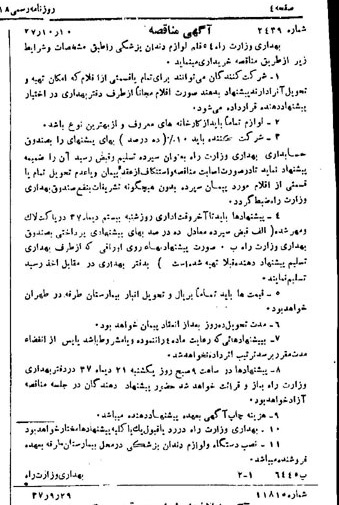 صفحه ۴ روزنامه رسمی ۱۸
شماره ۲۴۳۹ آگهی مناقصه ۲۷٫۱۰٫۱۰
بهداری وزارت راه قلم لوازم دندان پزشکی راطبق مشخصات وشرایط
زیر ازطریق مناقصه خریداری مینماید
۱ - شرکت کنندگان می‌توانند برای تمام یاقسمتی ازاقلام که امکان تهیه و
تحویل آنرادارند پیشنهاد بدهند صورت اقلام مجانا ازطرف دفتر بهداری در اختیار
پیشنهاد دهنده قرارداده می‌شود
۲ - لوازم تماما باید از کارخانه های معروف و از بهترین نوع باشد
۳ - شرکت کننده باید ۱۰٪ (ده درصد) بهای پیشنهای را بصندوق
حسابداری بهداری وزارت راه بعنوان سپرده تسلیم وقبض رسید آن را ضمیمه
پیشنهاد نماید تادرصورت اصابت مناقصه واستنکاف ازعقد پیمان ویاعدم تحویل تمام یا
قسمتی از اقلام مورد پیمان سپرده بدون هیچگونه تشریفات بنفع صندوق بهداری
وزارت راه ضبط گردد
۴ - پیشنهادها باید تا آخروقت اداری روز شنبه بیستم دیماه ۳۷ درپاکت لاک
ومهر شده (الف قبض سپرده معادل ده درصد بهای پیشنهادی پرداختی بصندوق
بهداری وزارت راه ب صورت پیشنهاد بهاء روی اوراقی که ازطرف بهداری
تسلیم پیشنهاد دهنده قبلا تهیه شده است) بدفتر بهداری در مقابل اخذ رسید
تسلیم نمایند
۵ - قیمت ها باید تماما بریال و تحویل انبار بیمارستان طرفه در طهران
خواهد بود
۶ - مدت تحویل ده روز بعد از انعقاد پیمان خواهد بود
۷ - به پیشنهادهائی که رعایت ماده ۴ را ننموده ویا مشروط باشد یا پس از انقضاء
مدت مقرر برسد ترتیب اثر داده نخواهد شد
۸ - پیشنهادها در ساعت ۹ صبح روز یکشنبه ۲۱ دیماه ۳۷ در دفتر بهداری
وزارت راه باز و قرائت خواهد شد حضور پیشنهاد دهندگان در جلسه مناقصه
آزاد خواهد بود
۹ - هزینه چاپ آگهی بعهده پیشنهاد دهنده میباشد
۱۰ - بهداری وزارت راه در رد یا قبول یک یا کلیه پیشنهادها مختار خواهد بود
۱۱ - نصب دستگاه ولوازم دندان پزشکی در محل بیمارستان طرفه بعهده
فروشنده میباشد
پ ۶۴۴۵ ۲-۱ بهداری وزارت راه
شماره ۱۱۸۱۵ ۳۷٫۹٫۲۹